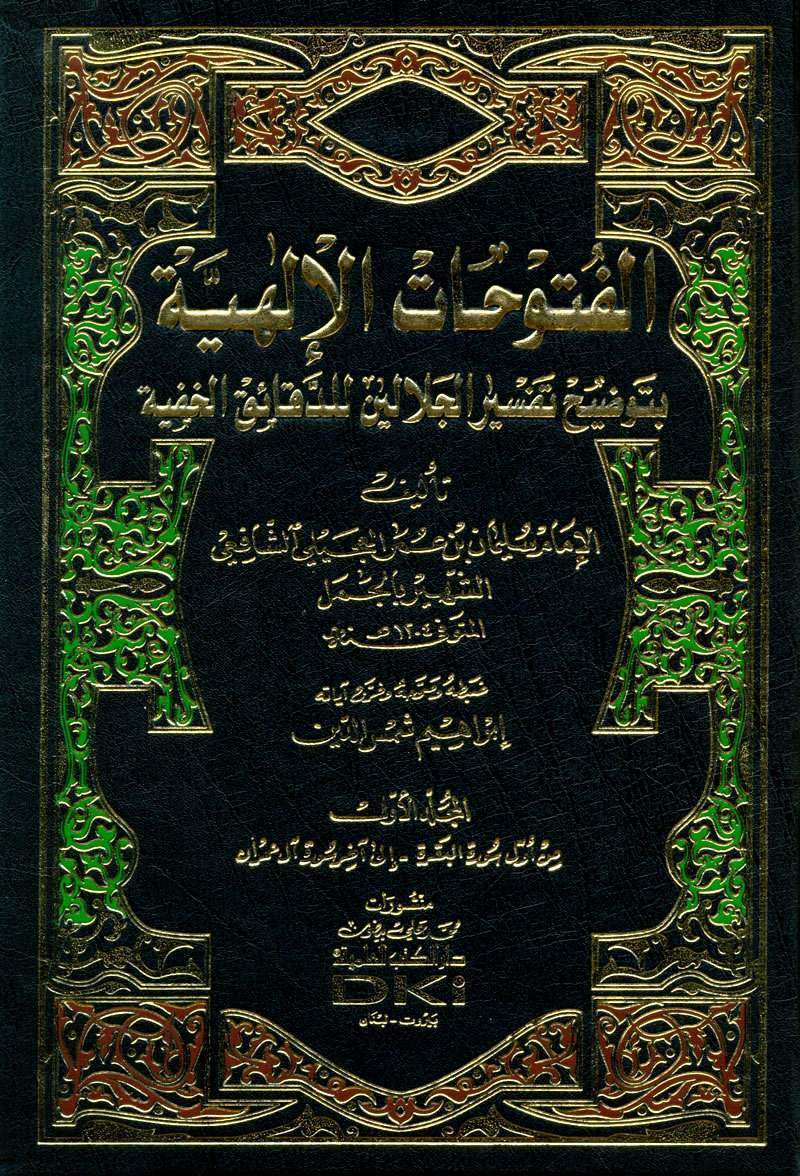 الفُتوْحَات الإِلٰهيَّة
بتَوضيْح تفسير الجلالين للدّقائِق الخفية
تأليف
الإمام سليمان بن عمر العجيلي الشافعي
الشهير بالجمل
المتوفى ١٢٠٤ هـ
ضبطه وصححه وخرج آياته
إبراهيم شمس الدين
المجلد الأول
من أول سورة البقرة - إلى آخر سورة آل عمران
منشورات
محمد علي بيضون
دار الكتب العلمية
DKi
بيروت - لبنان